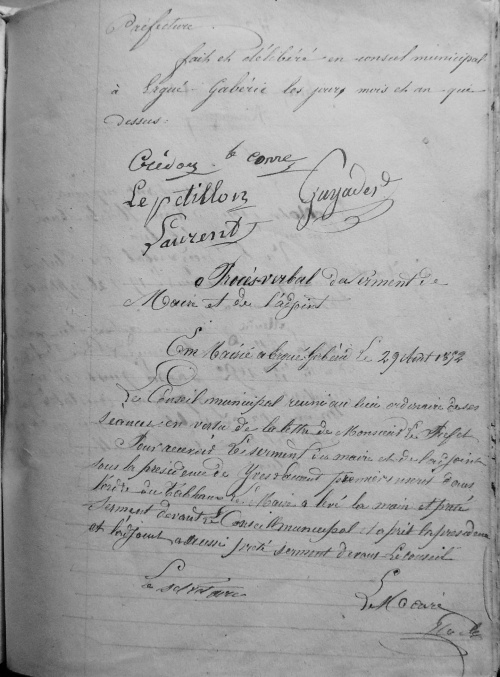 Préfecture.
fait et délibéré en conseil municipal
à Ergué-Gabéric les jours mois et an que
dessus.
Crédou le corre
Le pétillon Guyader
Laurent
Procès verbal du serment de
Maire et de l'adjoint
En Mairie a Ergué Gabéric le 29 Août 1852
Le Conseil municipal reuni au lieu ordinaire de ses
seances en vertu de la lettre de Monsieur le Prefet
Pour recevoir le serment du maire et de l'adjoint
sous la presidence de Yves Laurent premier nomé dans
l'ordre du tableau le Maire a levé la main et preté
serment devant le Conseil municipal et a prit la presidence
et l'adjoint a aussi preté serment devant le conseil
Le secretaire Le Maire